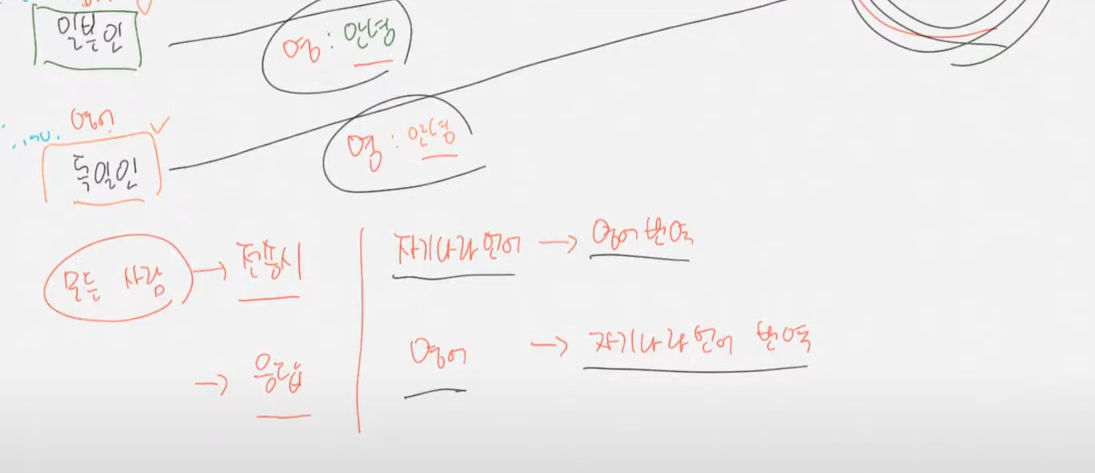 일본인
영 : 안녕
영어
독일인
영 : 안녕
모든 사람 → 전송시
자기나라언어 → 영어 번역
→ 응답
영어 → 자기나라언어 번역